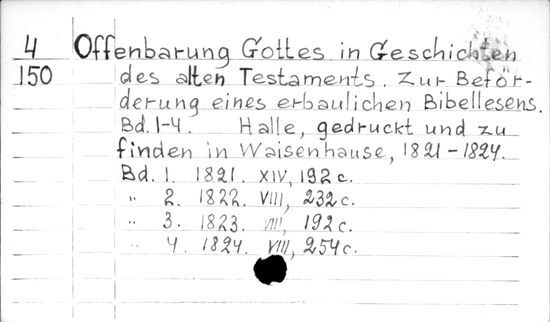 4 Offenbarung Gottes in Geschichten
150 des alten Testaments. Zur Beför-
derung eines erbaulichen Bibellesens.
Bd. 1-4. Halle, gedruckt und zu
finden in Waisenhause, 1821-1824.
Bd. 1. 1821. XIV, 192 c.
" 2. 1822. VIII, 232 c.
" 3. 1823. VIII, 192 c.
" 4. 1824. VIII, 254 c.